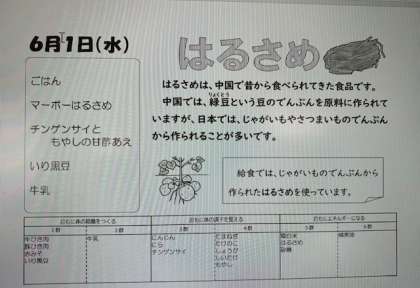 6月1日(水)
はるさめ
ごはん
マーボーはるさめ
チンゲンサイと
もやしの甘酢あえ
いり黒豆
牛乳
はるさめは、中国で昔から食べられてきた食品です。
中国では、緑豆という豆のでんぷんを原料に作られて
りょくとう
いますが、日本では、じゃがいもやさつまいものでんぷん
から作られることが多いです。
給食では、じゃがいものでんぷんから
作られたはるさめを使っています。
おもに体の組織をつくる
おもに体の調子を整える
おもにエネルギーになる
1群
2群
3群
4群
5群
6群
牛ひき肉
豚ひき肉
赤みそ
いり黒豆
牛乳
にんじん
にら
チンゲンサイ
たまねぎ
たけのこ
しょうが
しいたけ
もやし
はるさめ
砂糖